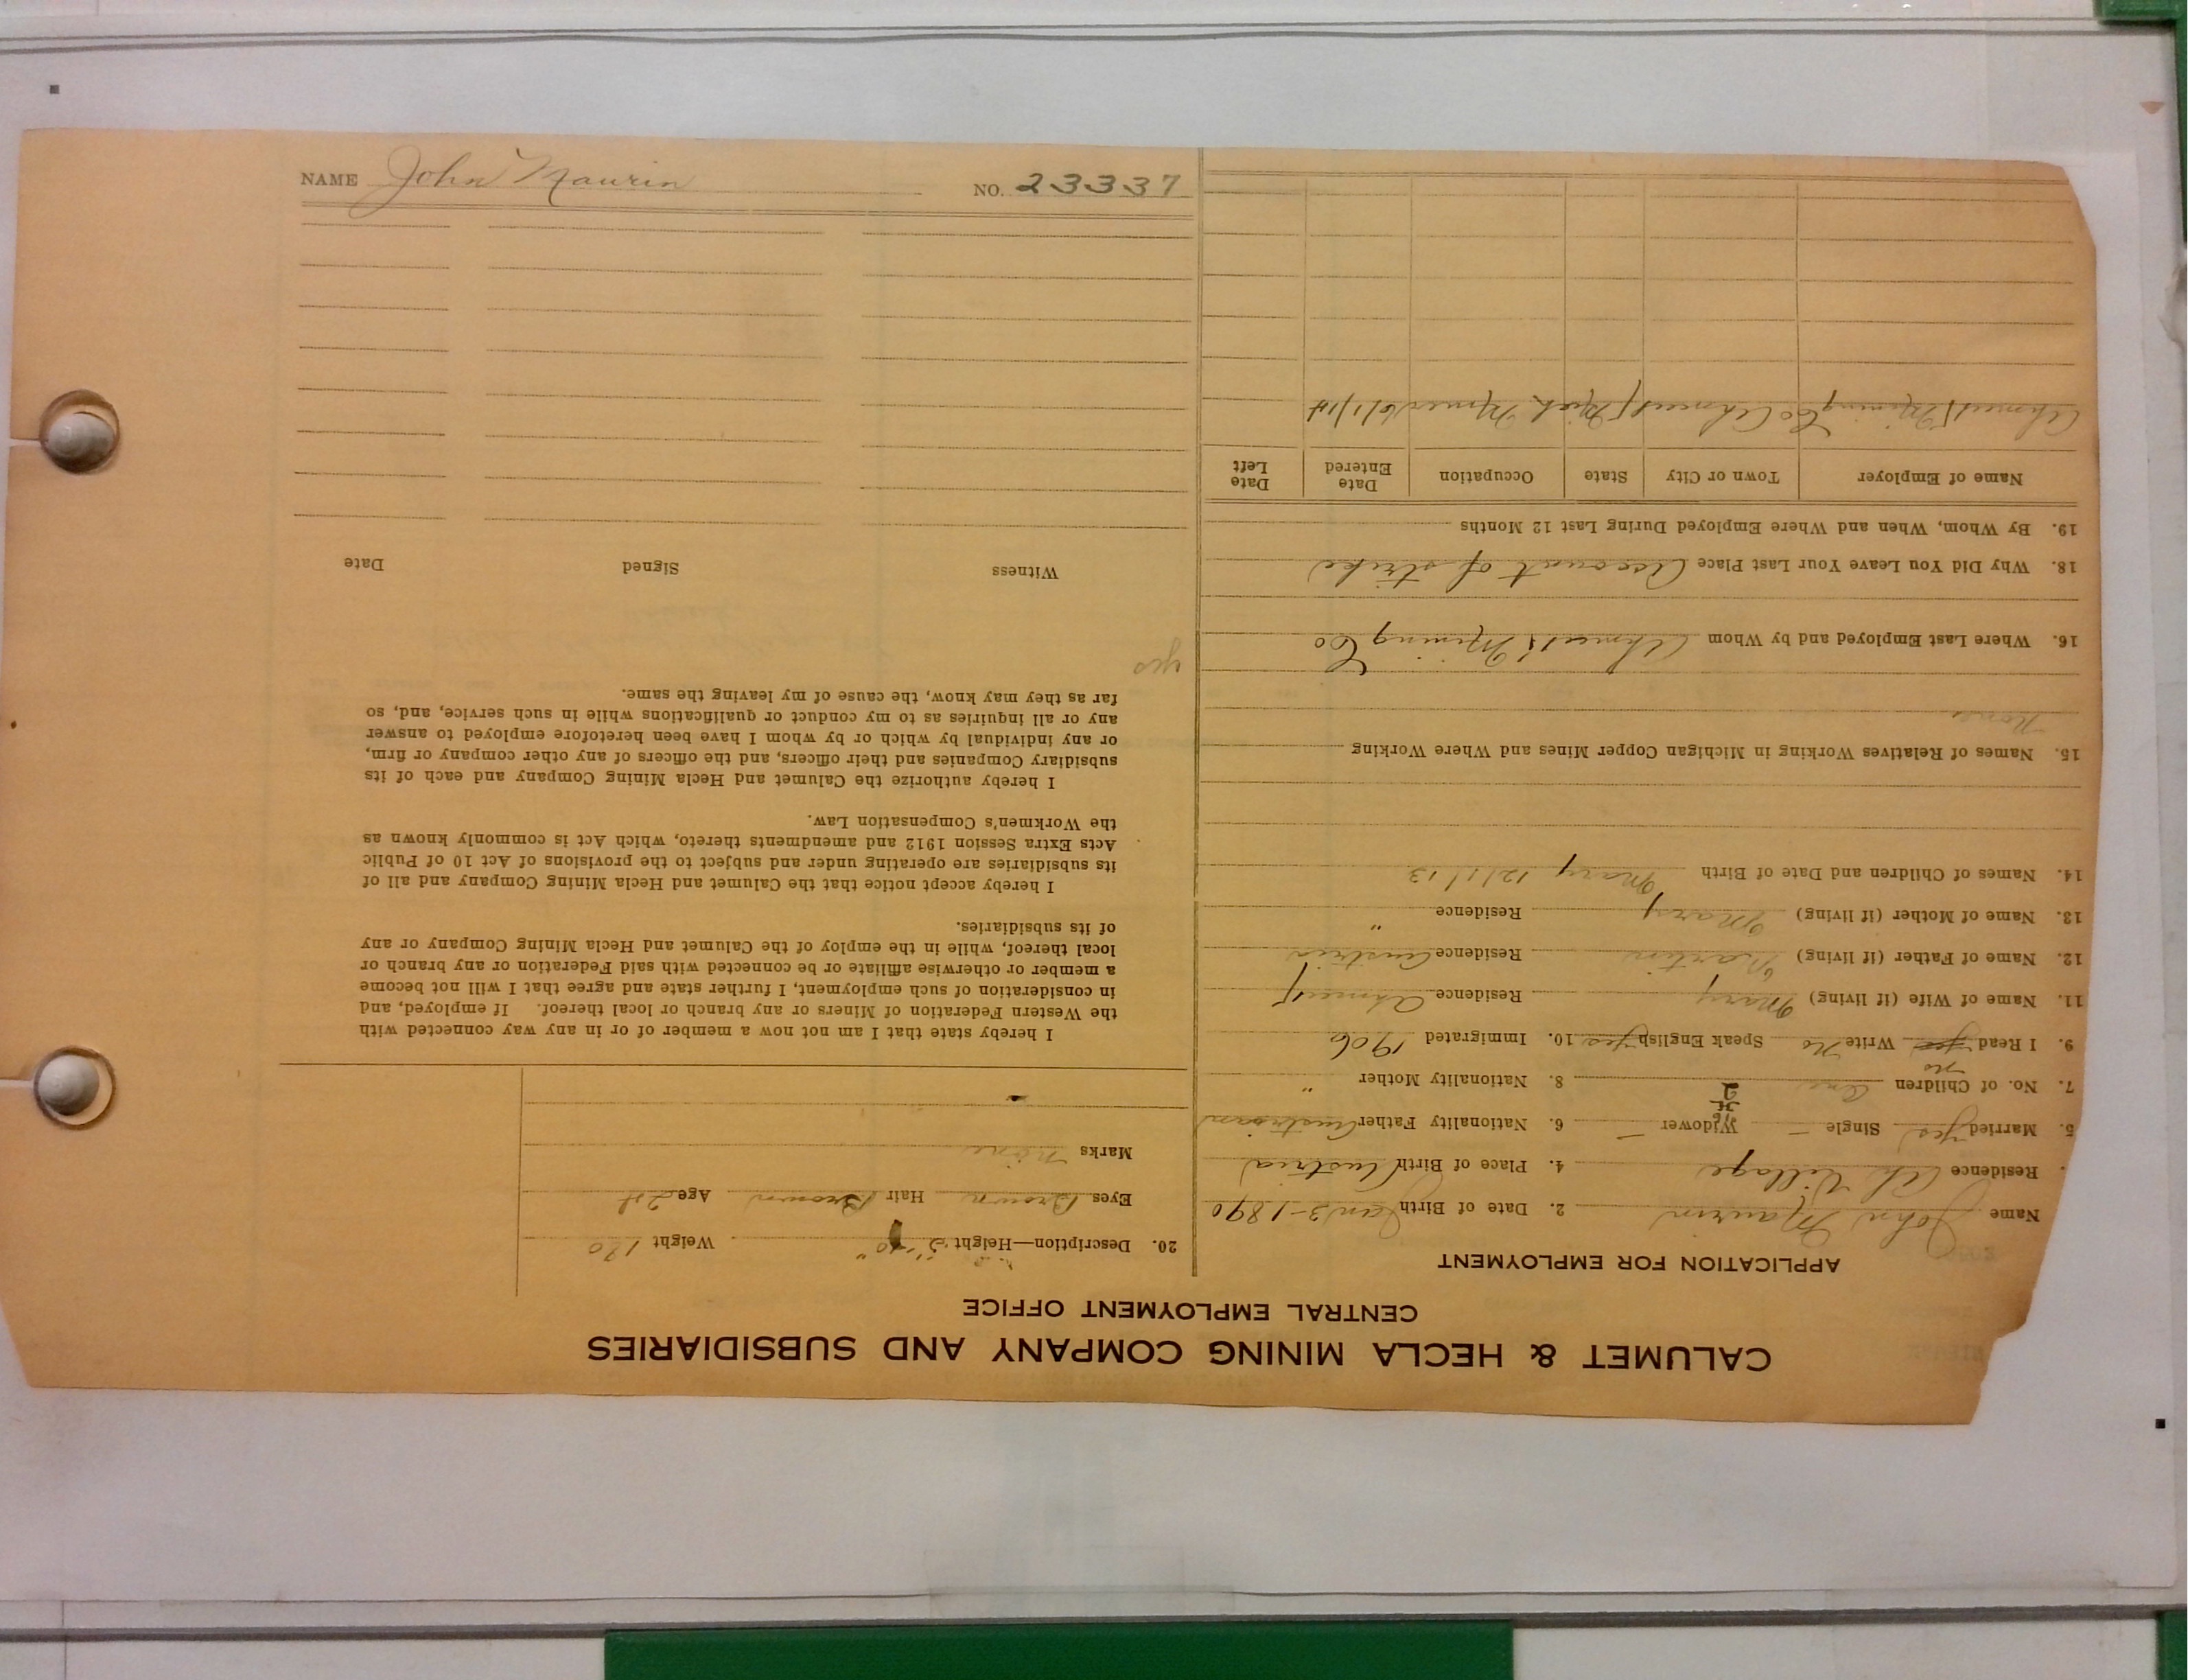 CALUMET & HECLA MINING COMPANY AND SUBSIDIARIES
CENTRAL EMPLOYMENT OFFICE
APPLICATION FOR EMPLOYMENT
Name John Maurin 2. Date of Birth Jan 3-1890
Residence Ah Village 4. Place of Birth Austria
5. Married yes Single – Widower – 6. Nationality Father Austrian
7. No. of Children One 8. Nationality Mother "
9. I Read yes no Write No Speak English yes 10. Immigrated 1906
11. Name of Wife (if living) Mary Residence Ahmeek
12. Name of Father (if living) Martin Residence Austria
13. Name of Mother (if living) Mary Residence "
14. Names of Children and Date of Birth Mary 12/1/13
15. Names of Relatives Working in Michigan Copper Mines and Where Working
None
16. Where Last Employed and by Whom Ahmeek Mining Co
18. Why Did You Leave Your Last Place Account of strike
19. By Whom, When and Where Employed During Last 12 Months
Name of Employer Town or City State Occupation Date Entered Date Left
Ahmeek Mining Co Ahmeek Mich Miner 6/1/14
20. Description—Height 5' 10" Weight 170
Eyes Brown Hair Brown Age 24
Marks None
I hereby state that I am not now a member of or in any way connected with
the Western Federation of Miners or any branch or local thereof. If employed, and
in consideration of such employment, I further state and agree that I will not become
a member or otherwise affiliate or be connected with said Federation or any branch or
local thereof, while in the employ of the Calumet and Hecla Mining Company or any
of its subsidiaries.
I hereby accept notice that the Calumet and Hecla Mining Company and all of
its subsidiaries are operating under and subject to the provisions of Act 10 of Public
Acts Extra Session 1912 and amendments thereto, which Act is commonly known as
the Workmen's Compensation Law.
I hereby authorize the Calumet and Hecla Mining Company and each of its
subsidiary Companies and their officers, and the officers of any other company or firm,
or any individual by which or by whom I have been heretofore employed to answer
any or all inquiries as to my conduct or qualifications while in such service, and, so
far as they may know, the cause of my leaving the same.
yes
Witness Signed Date
NAME John Maurin NO. 23337